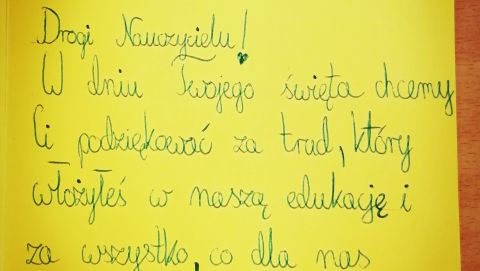 Drogi Nauczycielu!
W dniu Twojego święta chcemy
Ci podziękować za trud, który
włożyłeś w naszą edukację i
za wszystko, co dla nas